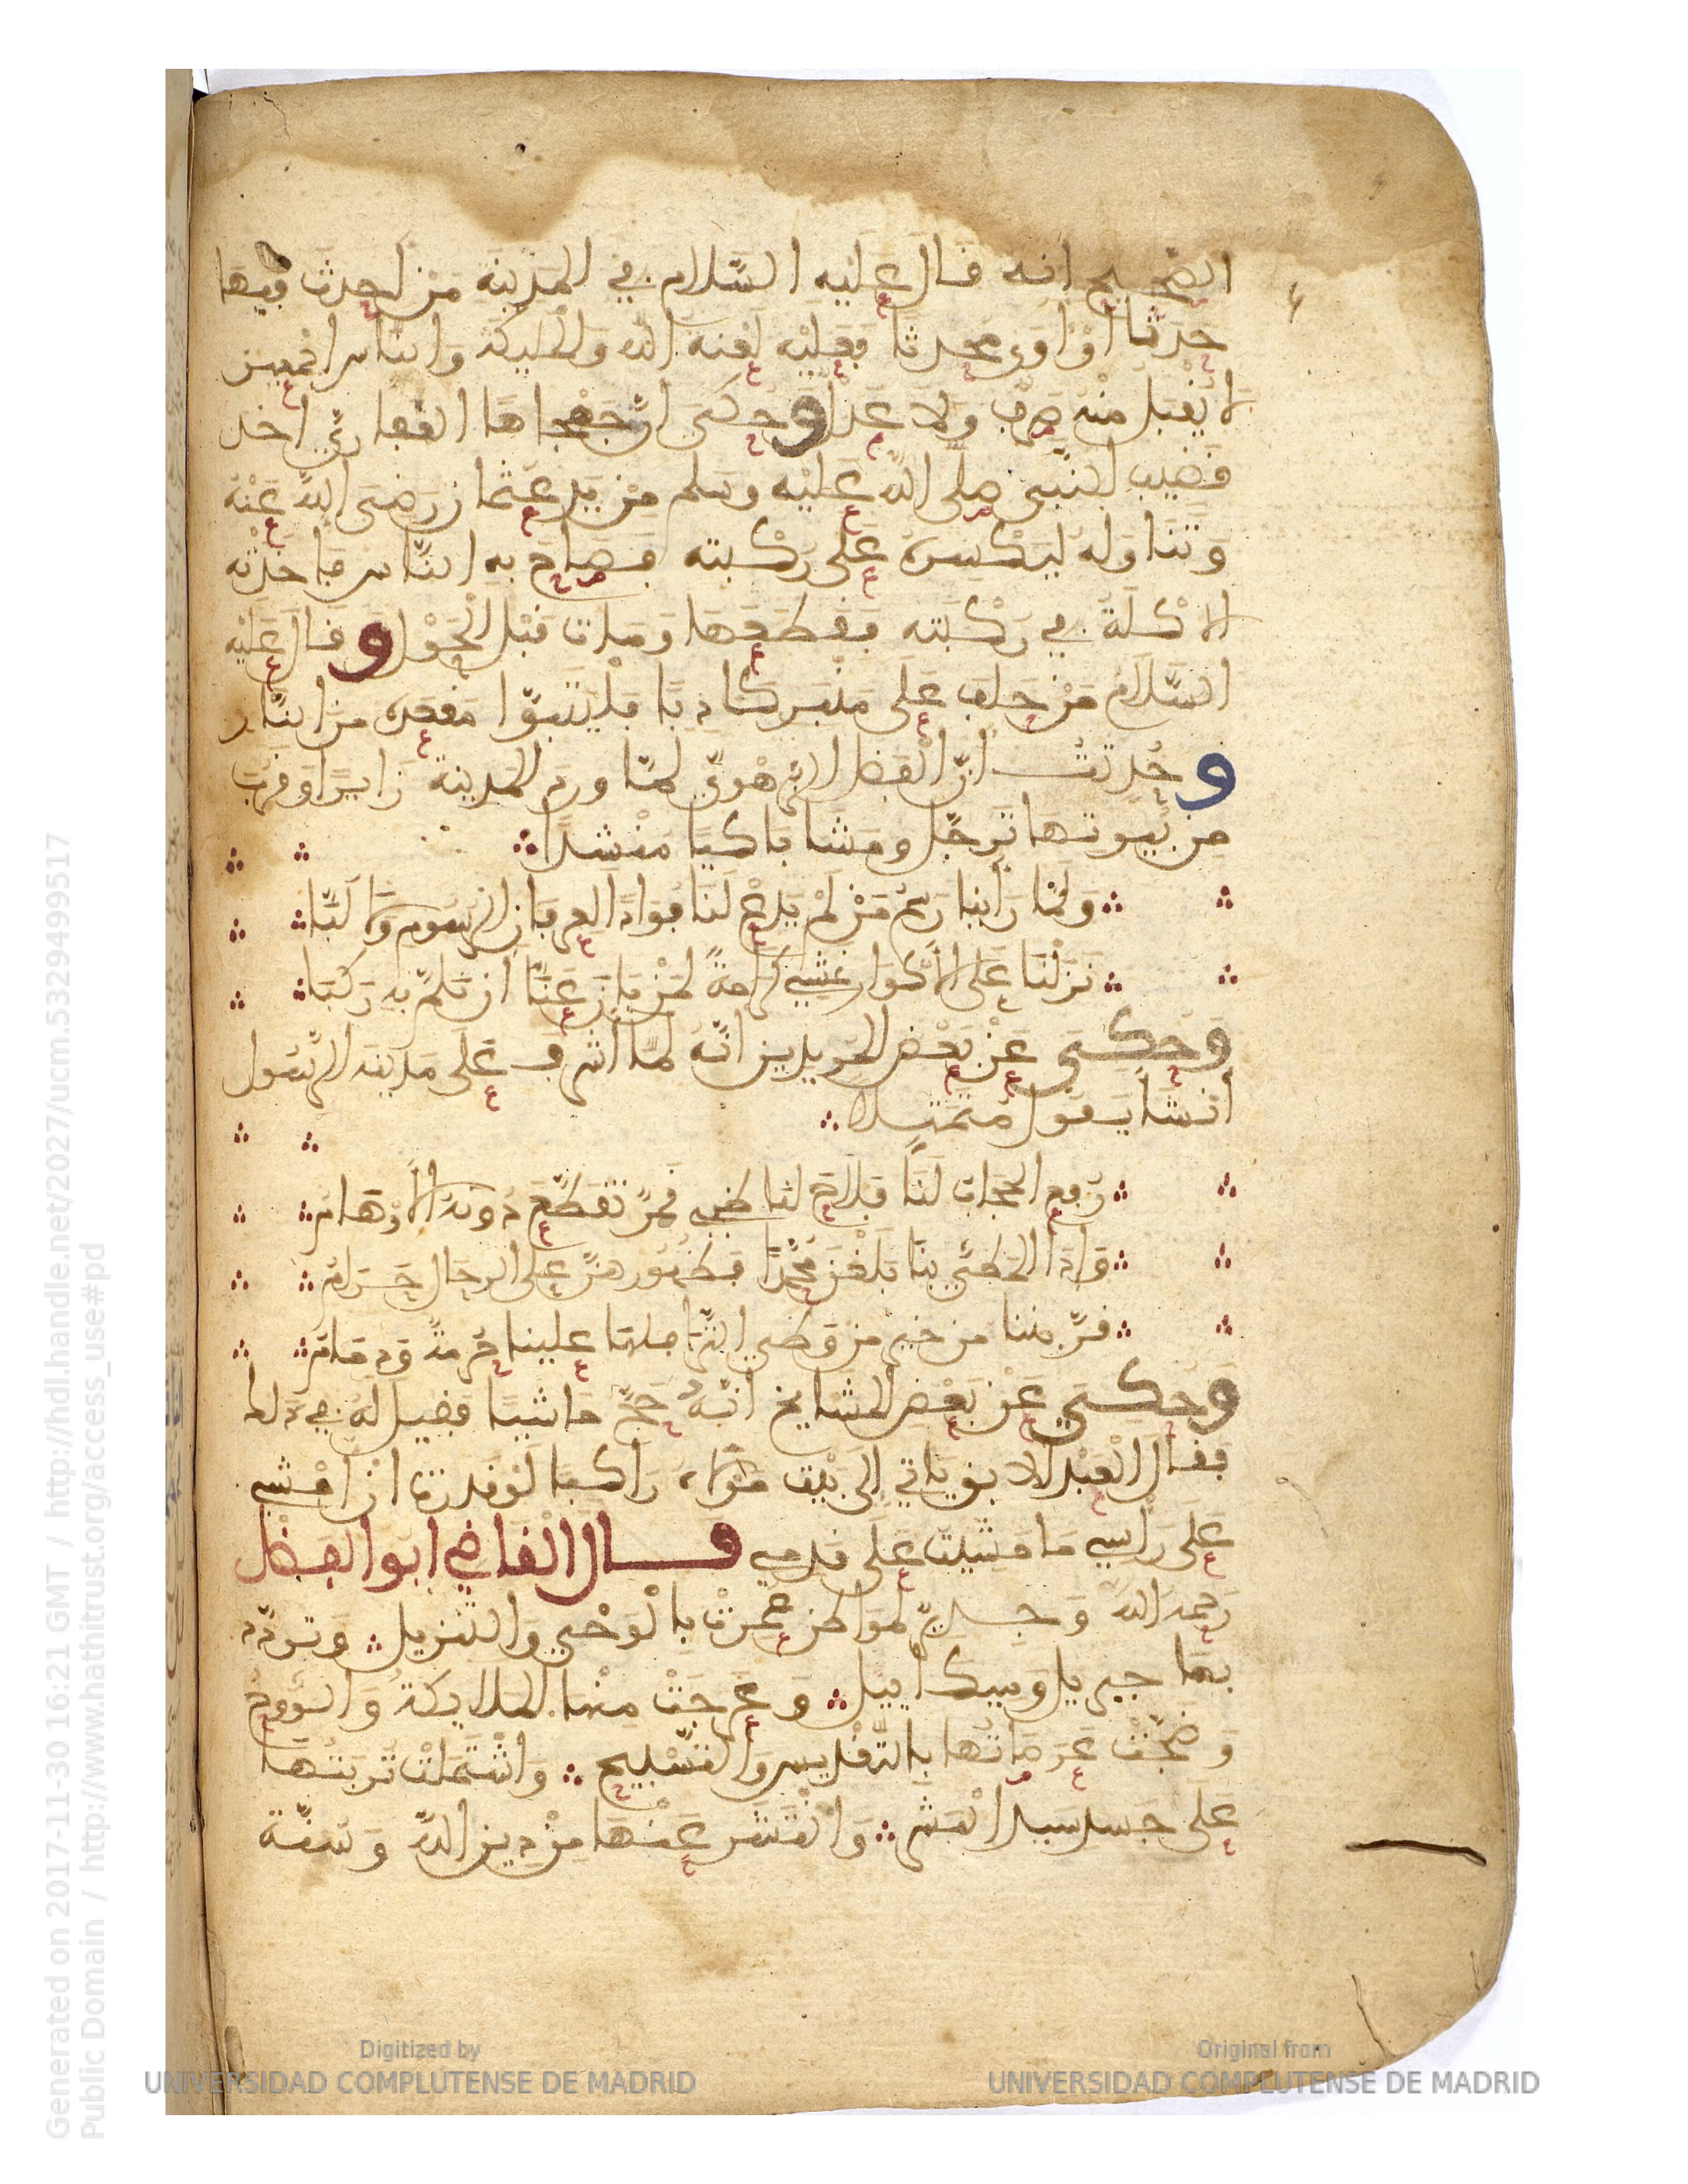 الصَّحِيحِ انه قَالَ عَلَيْه السَّلام في المَدِينَة مَنْ احدث فيهَا
حَدَثًا أوْ اوَى محدثا فعليْه لَعْنَةُ الله وَالْمَلَيكة وَالنَّاس اجْمعين
لا يَقْبَل مِنْهُ صرفٌ وَلا عَدْل وحُكَى انّ جَهْجاها الغفارِيَّ اخذ
قَضِيبَ النَّبي صلى الله عَلَيْه وسلم مِنْ يَد عُثْمان رَضي الله عَنْهُ
وَتَنَاوَلهُ لِيَكْسِرَهُ عَلى رُكْبته فَصَاحَ بِهِ النَّاس فاخَذتْه
الاكلَةُ في رُكْبَته فقطعَهَا وَمَات قَبْل الحَوْل وقَال عَلَيْه
السَّلامُ مَنْ حَلف عَلى مِنْبري كاذبًا فلْيَتَبوَّا مَقعده من النَّار
وحُدثتُ انّ أبَا الفَضْل الجَوْهَرِيَّ لمّا ورد المدينة زايرًا وقَرُبَ
من بُيُوتها تَرجّل ومَشا باكيًا مُنْشدًا
وَلمَّا رَأيْنا رَسْمَ مَنْ لَمْ يَدعْ لَنَا فُوَادًا لعرفان الرُّسُوم وَلا لُبَّا
نَزَلْنَا عَلى الأكْوَار نمْشي كَرَامَةً لمَنْ بَانَ عَنْهُ أن نُلِمَّ بِهِ رَكْبَا
وَحُكِىَ عَنْ بَعْض المُريدين انَّه لمّا أشرف عَلَى مَدينَة الرَّسُول
أنْشَأ يَقُول مُتمثلا
رُفع الحجابُ لَنَا فَلاحَ لنا ظرٍ قَمَرٌ تَقَطَّعُ دُونهُ الأوْهَامُ
وَاذَا المَطيُّ بنَا بَلَغْنَ مُحَمَّدًا فظُهُورهنَّ على الرحَال حَرَامُ
قرَّبننا من خير من وَطي الثّرى فلها علينا حُرمةٌ وذمامُ
وَحُكِىَ عَنْ بَعْض المشايخ أنّهُ حَجَّ مَاشيًا فقيل لهُ في ذلك
فقال العَبْد الابق ياتي إلى بَيْت مَوْلاه راكبًا لَوْ قدرتُ انْ امْشي
عَلَى رَأسي مَا مَشيت عَلى قدَمي قال القاضي ابو الفضل
رَحمهُ الله وَجديرٌ لموَاطن عُمِرَتْ بالوَحْي وَالتنزيل وَتردّد
بها جبريل وميكاييل وَعَرجَتْ منها الملايكة وَالرُّوح
وَضجَّتْ عَرَصَاتُها بالتّقديس وَالتّسْبيح وَاشْتَمَلتْ تُربَتُها
عَلى جَسد سَيد البَشر وَانتَشر عَنْهَا مِنْ دين الله وَسُنّة
Generated on 2017-11-30 16:21 GMT / http://hdl.handle.net/2027/ucm.5329499517
Public Domain / http://www.hathitrust.org/access_use#pd
Digitized by
UNIVERSIDAD COMPLUTENSE DE MADRID
Original from
UNIVERSIDAD COMPLUTENSE DE MADRID